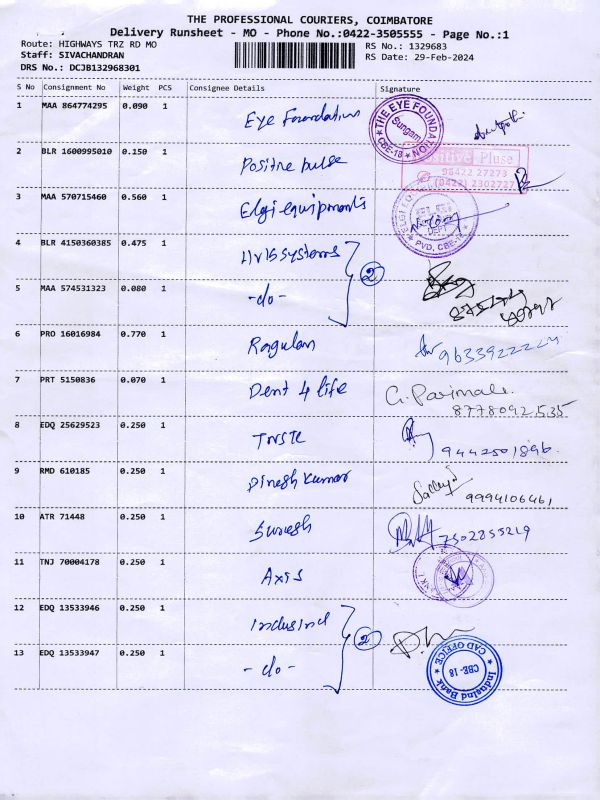 THE PROFESSIONAL COURIERS, COIMBATORE
Delivery Runsheet - MO - Phone No.:0422-3505555 - Page No.:1
Route: HIGHWAYS TRZ RD MO
RS No.: 1329683
Staff: SIVACHANDRAN
RS Date: 29-Feb-2024
DRS No.: DCJB132968301
S No Consignment No Weight PCS Consignee Details Signature
1 MAA 864774295 0.090 1 Eye Foundation
THE EYE FOUNDATION Sungam CBE-18
2 BLR 1600995010 0.150 1 Positive pulse
Positive Pluse
98422 27273
(0422) 2302727
3 MAA 570715460 0.560 1 Elgi equipments
ELGI DEPT PVD, CBE-18
4 BLR 4150360385 0.475 1 systems
2
5 MAA 574531323 0.080 1 -do-
6 PRO 16016984 0.770 1 Ragulan
7 PRT 5150836 0.070 1 Dent 4 life G. Parimala
8778092535
8 EDQ 25629523 0.250 1 TNSTC
9442501896
9 RMD 610185 0.250 1 Dinesh Kumar
9994106461
10 ATR 71448 0.250 1 Suresh 7502855219
11 TNJ 70004178 0.250 1 Axis
12 EDQ 13533946 0.250 1 Indusind
2
13 EDQ 13533947 0.250 1 -do-
IndusInd Bank CBE-18 CAD OFFICE